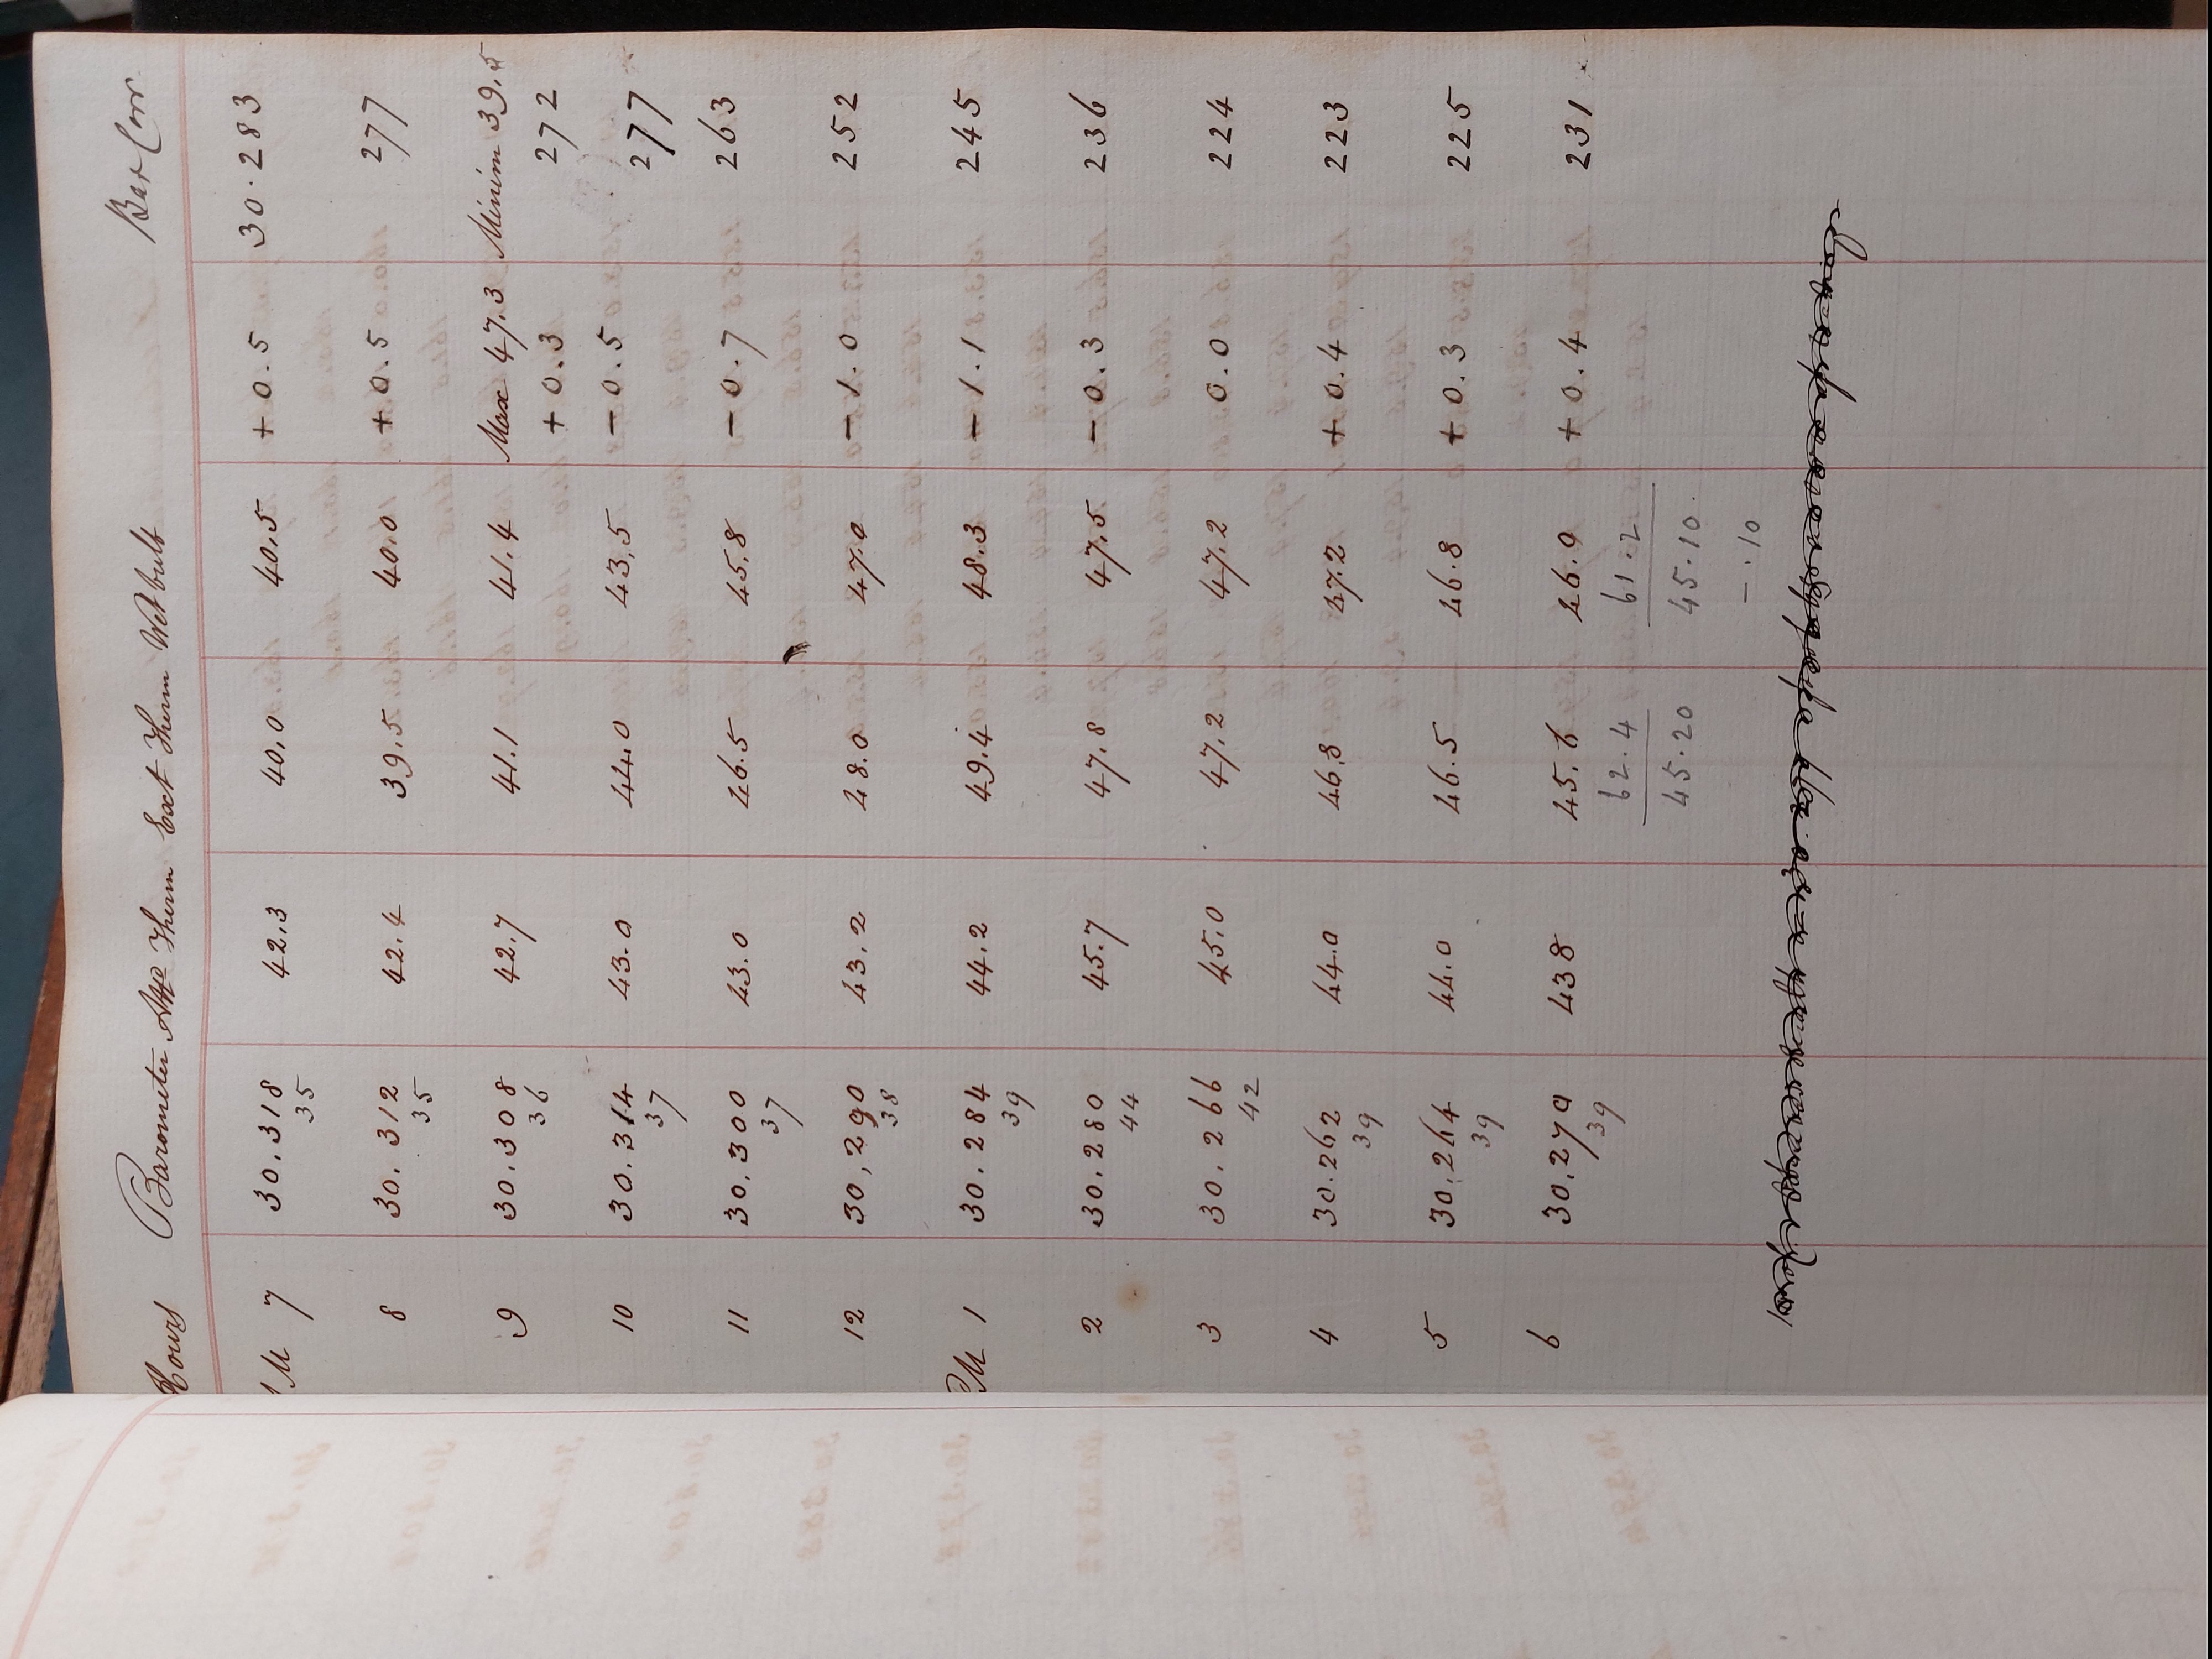 Hours Barometer Attd Therm Ext Therm Wet bulb Bar Corr
M 7 30.318 42.3 40.0 40.5 + 0.5 30.283
35
8 30.312 42.4 39.5 40.0 + 0.5 277
35
9 30.308 42.7 41.1 41.4 Max 47.3 Minim 39.5
36 + 0.3 272
10 30.314 43.0 44.0 43.5 - 0.5 277
37
11 30.300 43.0 46.5 45.8 - 0.7 263
37
12 30,290 43.2 48.0 47.0 - 1.0 252
38
PM 1 30.284 44.2 49.4 48.3 - 1.1 245
39
2 30.280 45.7 47.8 47.5 - 0.3 236
44
3 30.266 45.0 47.2 47.2 0.0 224
42
4 30.262 44.0 46.8 47.2 + 0.4 223
39
5 30.264 44.0 46.5 46.8 + 0.3 225
39
6 30.270 438 45.6 46.0 + 0.4 231
39 62.4 61.2
45.20 45.10
- .10